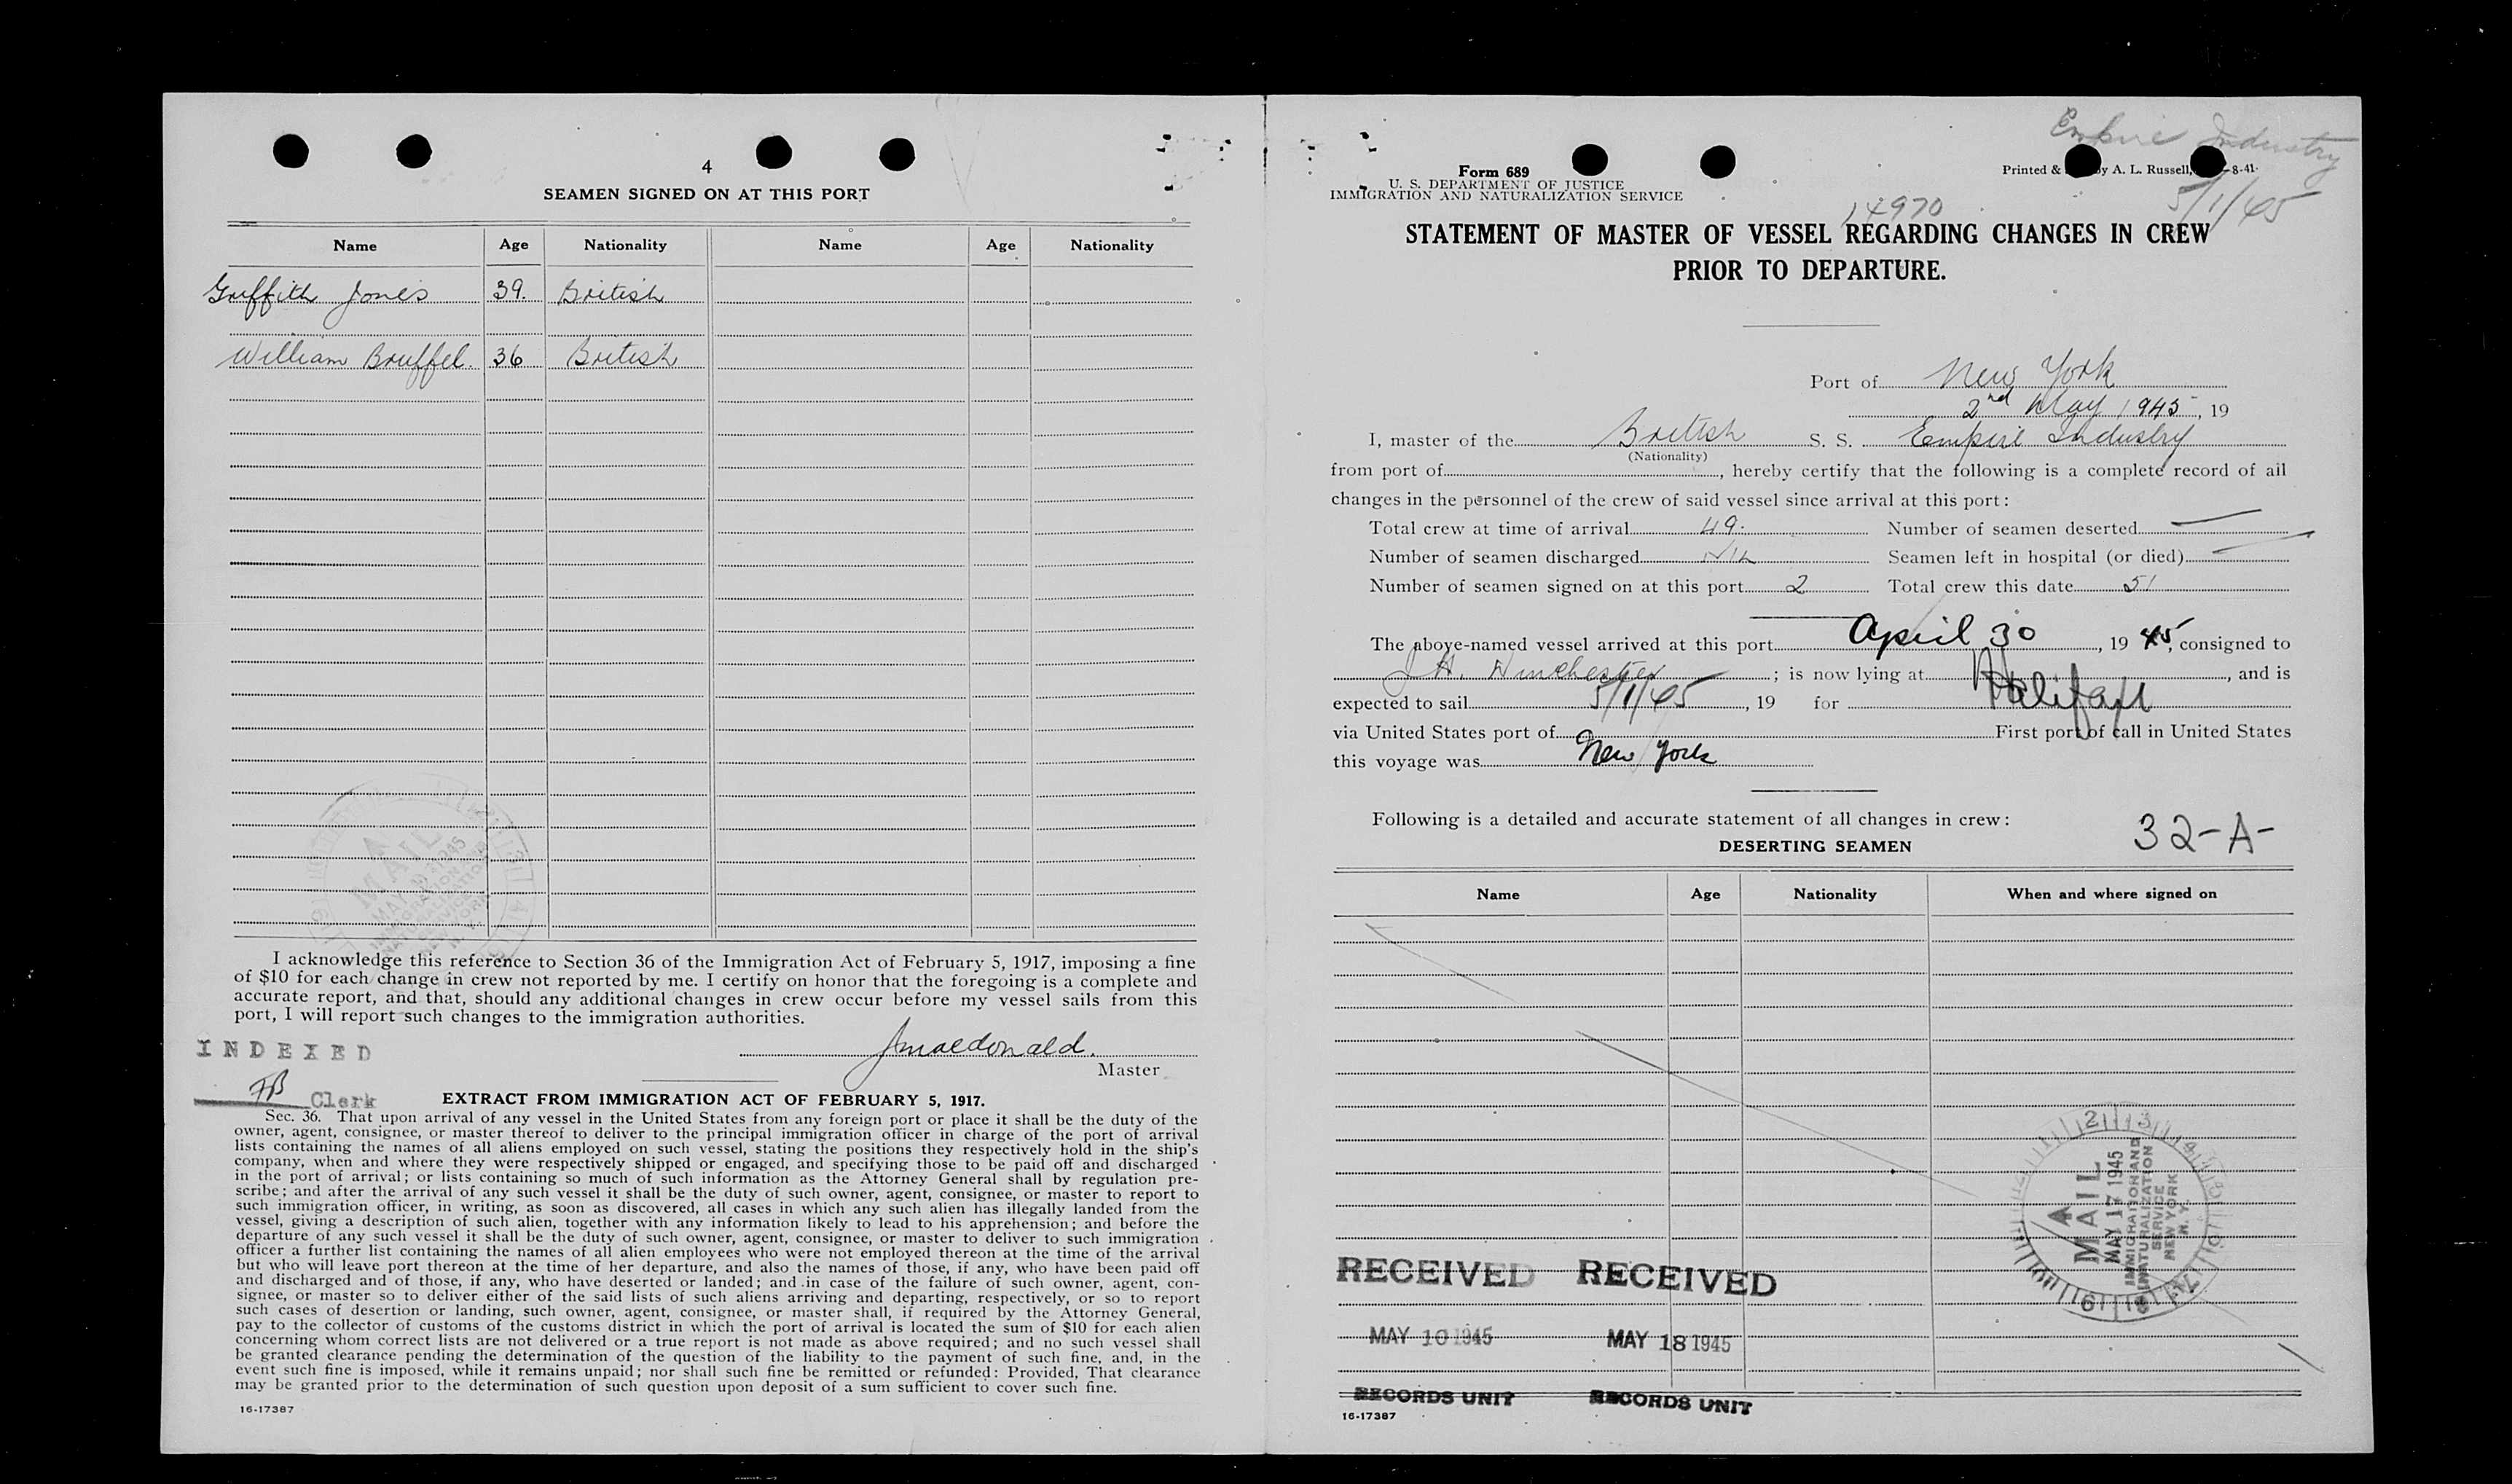 4
SEAMEN SIGNED ON AT THIS PORT
Name Age Nationality Name Age Nationality
Griffith Jones 39. British
William Bruffel. 36 British
I acknowledge this reference to Section 36 of the Immigration Act of February 5, 1917, imposing a fine
of $10 for each change in crew not reported by me. I certify on honor that the foregoing is a complete and
accurate report, and that, should any additional changes in crew occur before my vessel sails from this
port, I will report such changes to the immigration authorities.
INDEXED
JMacdonald.
Master
FB Clerk
EXTRACT FROM IMMIGRATION ACT OF FEBRUARY 5, 1917.
Sec. 36. That upon arrival of any vessel in the United States from any foreign port or place it shall be the duty of the
owner, agent, consignee, or master thereof to deliver to the principal immigration officer in charge of the port of arrival
lists containing the names of all aliens employed on such vessel, stating the positions they respectively hold in the ship's
company, when and where they were respectively shipped or engaged, and specifying those to be paid off and discharged
in the port of arrival; or lists containing so much of such information as the Attorney General shall by regulation pre-
scribe; and after the arrival of any such vessel it shall be the duty of such owner, agent, consignee, or master to report to
such immigration officer, in writing, as soon as discovered, all cases in which any such alien has illegally landed from the
vessel, giving a description of such alien, together with any information likely to lead to his apprehension; and before the
departure of any such vessel it shall be the duty of such owner, agent, consignee, or master to deliver to such immigration
officer a further list containing the names of all alien employees who were not employed thereon at the time of the arrival
but who will leave port thereon at the time of her departure, and also the names of those, if any, who have been paid off
and discharged and of those, if any, who have deserted or landed; and in case of the failure of such owner, agent, con-
signee, or master so to deliver either of the said lists of such aliens arriving and departing, respectively, or so to report
such cases of desertion or landing, such owner, agent, consignee, or master shall, if required by the Attorney General,
pay to the collector of customs of the customs district in which the port of arrival is located the sum of $10 for each alien
concerning whom correct lists are not delivered or a true report is not made as above required; and no such vessel shall
be granted clearance pending the determination of the question of the liability to the payment of such fine, and, in the
event such fine is imposed, while it remains unpaid; nor shall such fine be remitted or refunded: Provided, That clearance
may be granted prior to the determination of such question upon deposit of a sum sufficient to cover such fine.
16-17387
Empire Industry
5/1/45
Form 689
U. S. DEPARTMENT OF JUSTICE
IMMIGRATION AND NATURALIZATION SERVICE
Printed & by A. L. Russell, 8-41.
14970
STATEMENT OF MASTER OF VESSEL REGARDING CHANGES IN CREW
PRIOR TO DEPARTURE.
Port of New York
2nd May 1945, 19
I, master of the British S. S. Empire Industry
(Nationality)
from port of , hereby certify that the following is a complete record of all
changes in the personnel of the crew of said vessel since arrival at this port:
Total crew at time of arrival 49. Number of seamen deserted —
Number of seamen discharged NIL Seamen left in hospital (or died) —
Number of seamen signed on at this port 2 Total crew this date 51
The above-named vessel arrived at this port April 30, 19 45, consigned to
J. H. Winchester; is now lying at , and is
expected to sail 5/1/45, 19 for Halifax
via United States port of First port of call in United States
this voyage was New York
Following is a detailed and accurate statement of all changes in crew:
32-A-
DESERTING SEAMEN
Name Age Nationality When and where signed on
MAIL
MAY 17 1945
IMMIGRATION AND
NATURALIZATION
SERVICE
NEW YORK
N. Y.
RECEIVED RECEIVED
MAY 10 1945 MAY 18 1945
RECORDS UNIT RECORDS UNIT
16-17387